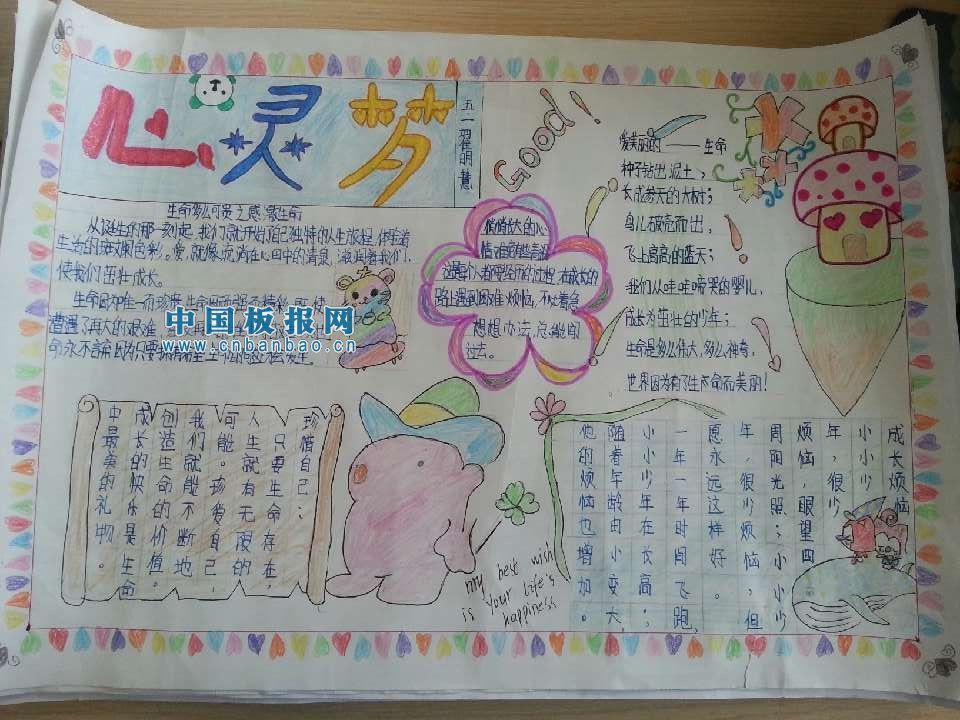 心灵梦
五一 翟明慧
Good!
生命多么可贵之感激生命
从诞生的那一刻起,我们就开始了自己独特的人生旅程,体验着
生活的斑斓色彩。爱,就像流淌在心田中的清泉,滋润着我们,
使我们茁壮成长。
生命因如
遭遇了再大的艰难
命永不言弃
中国板报网
www.cnbanbao.cn
悄悄长大的心
情难免
这是每个人都要经历的过程,在成长的
路上遇到困难、烦恼,不必着急
想想办法,总能
过去。
爱美丽的——生命
种子钻出泥土,
长成参天的大树;
鸟儿破壳而出,
飞上高高的蓝天;
我们从哇哇啼哭的婴儿,
成长为茁壮的少年;
生命是多么伟大,多么神奇,
世界因为有了生命而美丽!
珍惜自己:
人生只要生命存在,
可能就有无限的
我们就能珍爱自己,
创造生命不断地
成长的快乐的价值。
中最美的礼物。是生命
my best wish
is your life's
happiness
成长烦恼
小小少
年,很少
烦恼,眼望四
周阳光照;小小少
年,很少烦恼,但
愿永远这样好。
一年一年时间飞跑,
小小少年在长高;
随着年龄由小变大,
他的烦恼也增加。